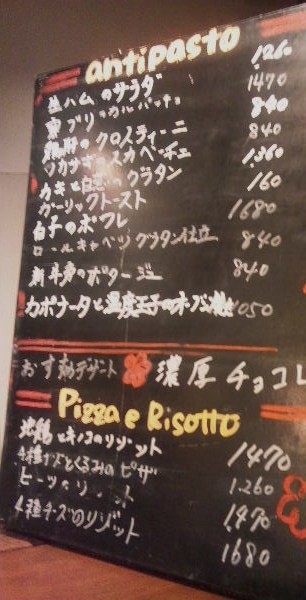 antipasto
生ハムのサラダ 1,260
寒ブリのカルパッチョ 1470
鶏肝のクロスティーニ 840
ワカサギのスカペッチェ 840
カキと白 のグラタン 1,360
ガーリックトースト 160
白子のポワレ 1680
ロールキャベツグラタン仕立 840
新 のポタージュ 840
カポナータと温度玉子のオーブン焼き 1050
おすすめデザート 濃厚チョコレ
Pizza e Risotto
地鶏とキノコのリゾット 1470
4種チーズとくるみのピザ 1,260
ビーツのリゾット 1,470
4種チーズのリゾット 1680